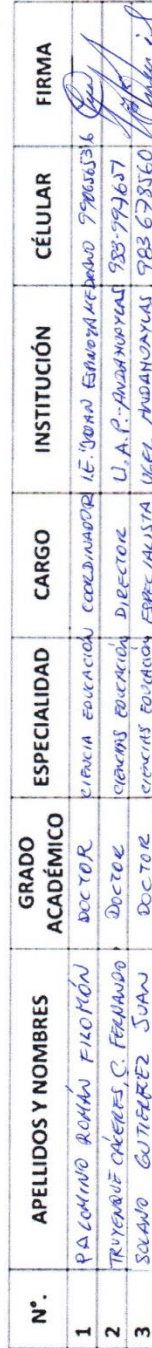 N°. APELLIDOS Y NOMBRES GRADO ACADÉMICO ESPECIALIDAD CARGO INSTITUCIÓN CÉLULAR FIRMA
1 PALOMINO ROMÁN FILOMÓN DOCTOR CIENCIA EDUCACIÓN COORDINADOR I.E. JUAN ESPINOZA MEDRANO
2 TRUYENQUE CÁCERES, C. FERNANDO DOCTOR CIENCIAS EDUCACIÓN DIRECTOR U.A.P.-ANDAHUAYLAS 983-997657
3 SOLANO GUTIERREZ JUAN DOCTOR CIENCIAS EDUCACIÓN ESPECIALISTA UGEL ANDAHUAYLAS 983 678560